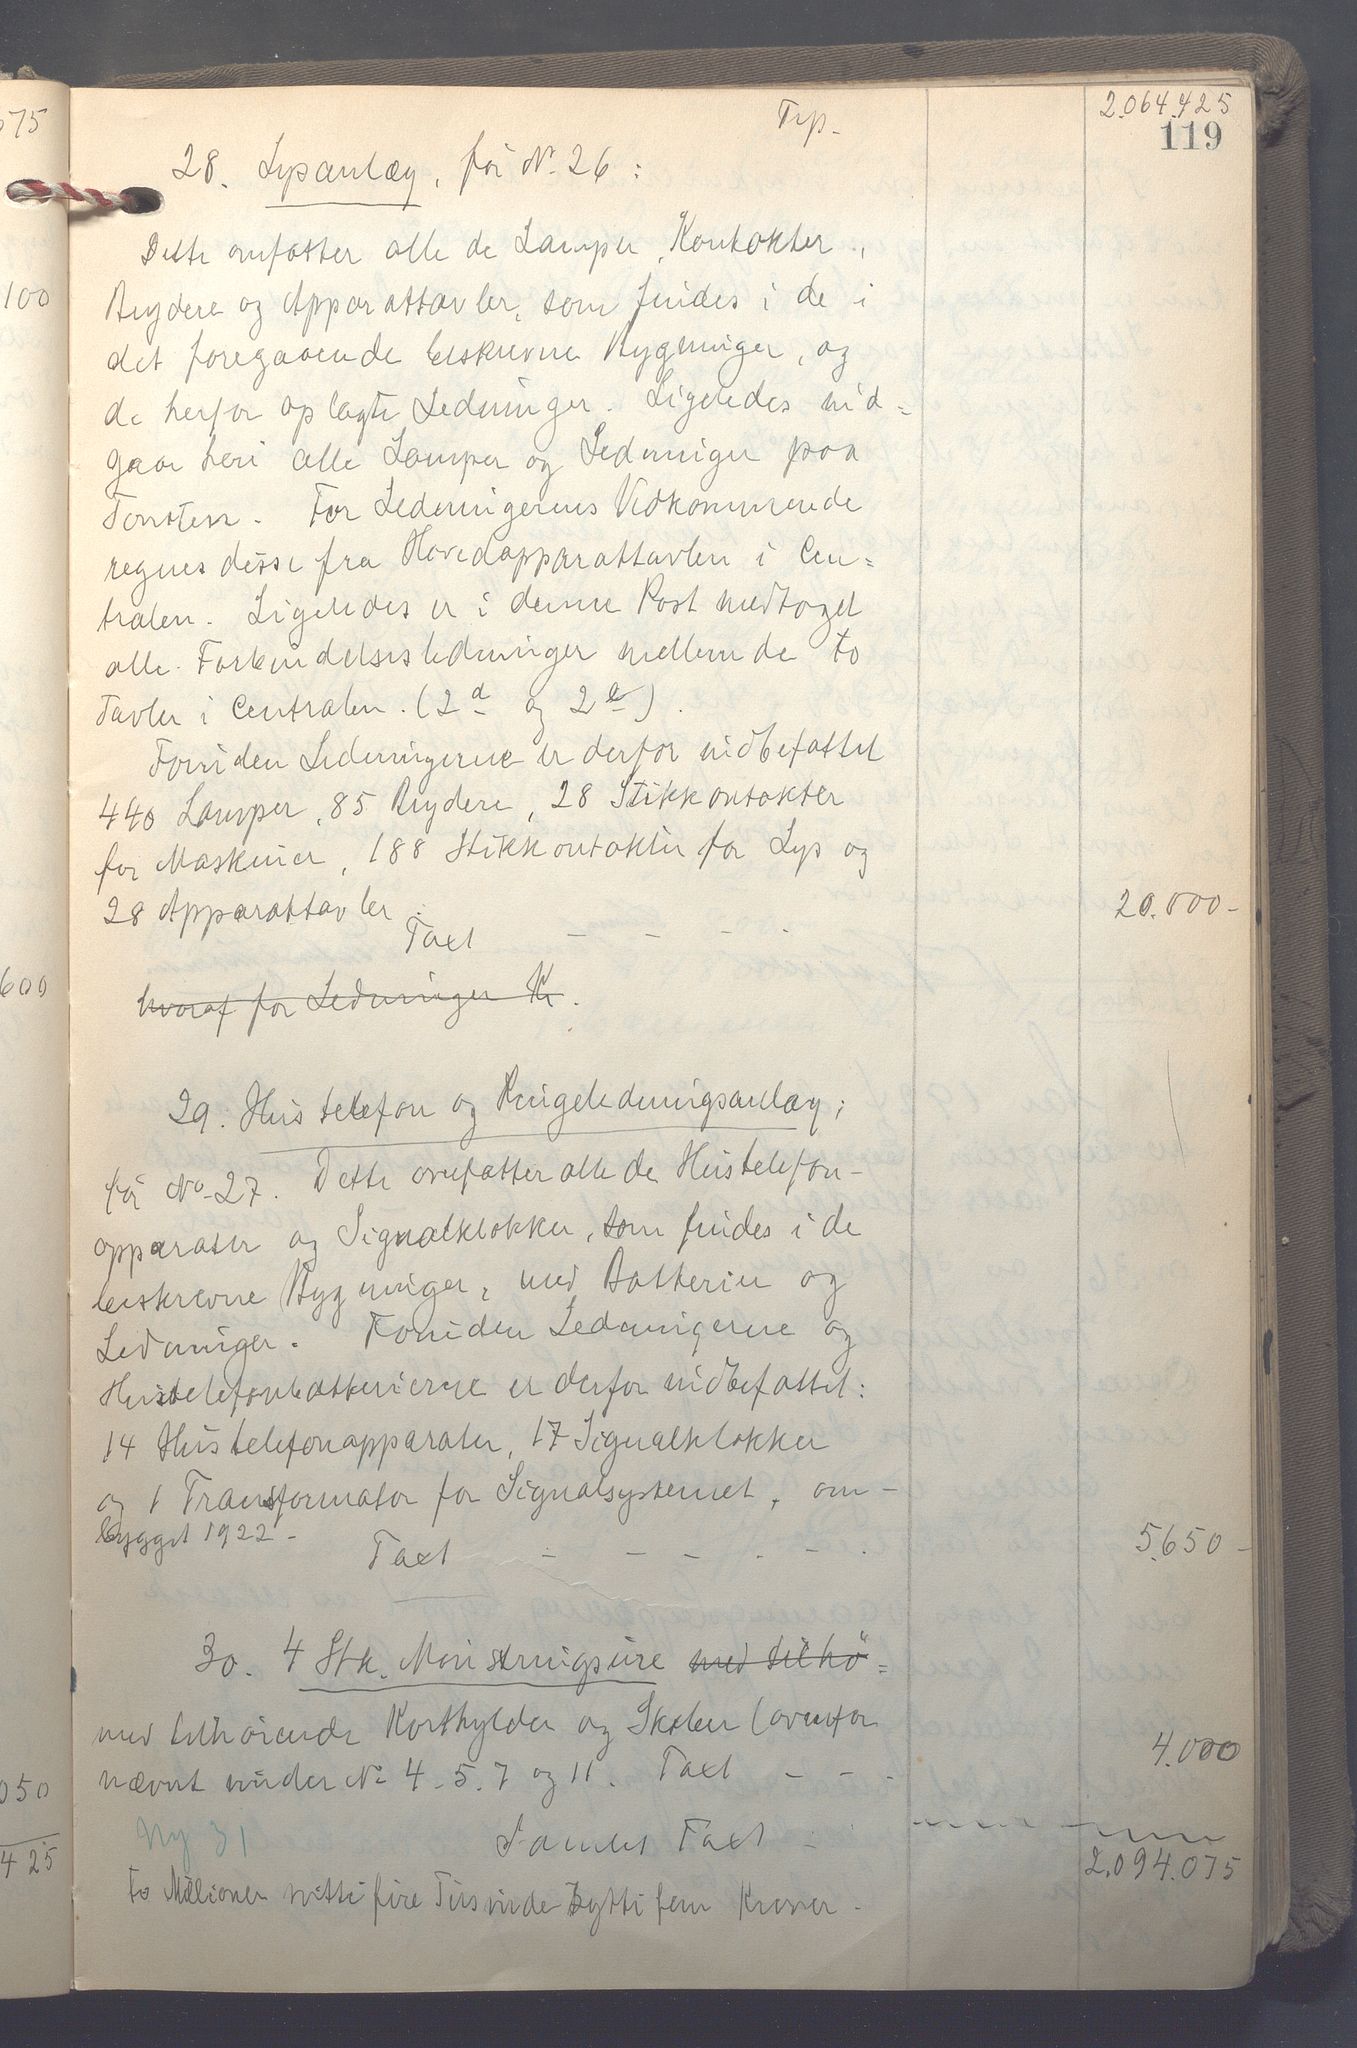 Trp. 2.064.425
119
28. Lysanlæg, før No. 26:
Dette omfatter alle de Lamper, Kontakter,
Brydere og Apparattavler, som findes i de i
det foregaaende beskrevne Bygninger, og
de herfor oplagte Ledninger. Ligeledes ind=
gaar heri alle Lamper og Ledninger paa
Tomten. For Ledningernes Vidkommende
regnes disse fra Hovedapparattavlen i Cen=
tralen. Ligeledes er i denne Post medtaget
alle Forbindelsesledninger mellem de to
Tavler i Centralen. (2d og 2e).
Foruden Ledningerne er derfor indbefattet
440 Lamper, 85 Brydere, 28 Stikkontakter
for Maskiner, 188 Stikkontakter for Lys og
28 Apparattavler.
Taxt - - - - 20.000-
hvoraf for Ledninger Kr.
29. Hustelefon og Ringeledningsanlæg;
før No. 27. Dette omfatter alle de Hustelefon-
apparater og Signalklokker, som findes i de
beskrevne Bygninger, med Batterier og
Ledninger. Foruden Ledningerne og
Hustelefonbatterierne er derfor indbefattet:
14 Hustelefonapparater, 17 Signalklokker
og 1 Transformator for Signalsystemet, om-
bygget 1922-
Taxt - - - - - - 5.650-
30. 4 Stk. Mønstringsure med tilhø=
med tilhørende Korthylder og Skabe (ovenfor
nævnt under No 4. 5. 7 og 11. Taxt - - - 4.000
Ny 31
Samlet Taxt - 2.094.075
To Millioner nitti fire Tusinde sytti fem Kroner.
575
100
600
050
425